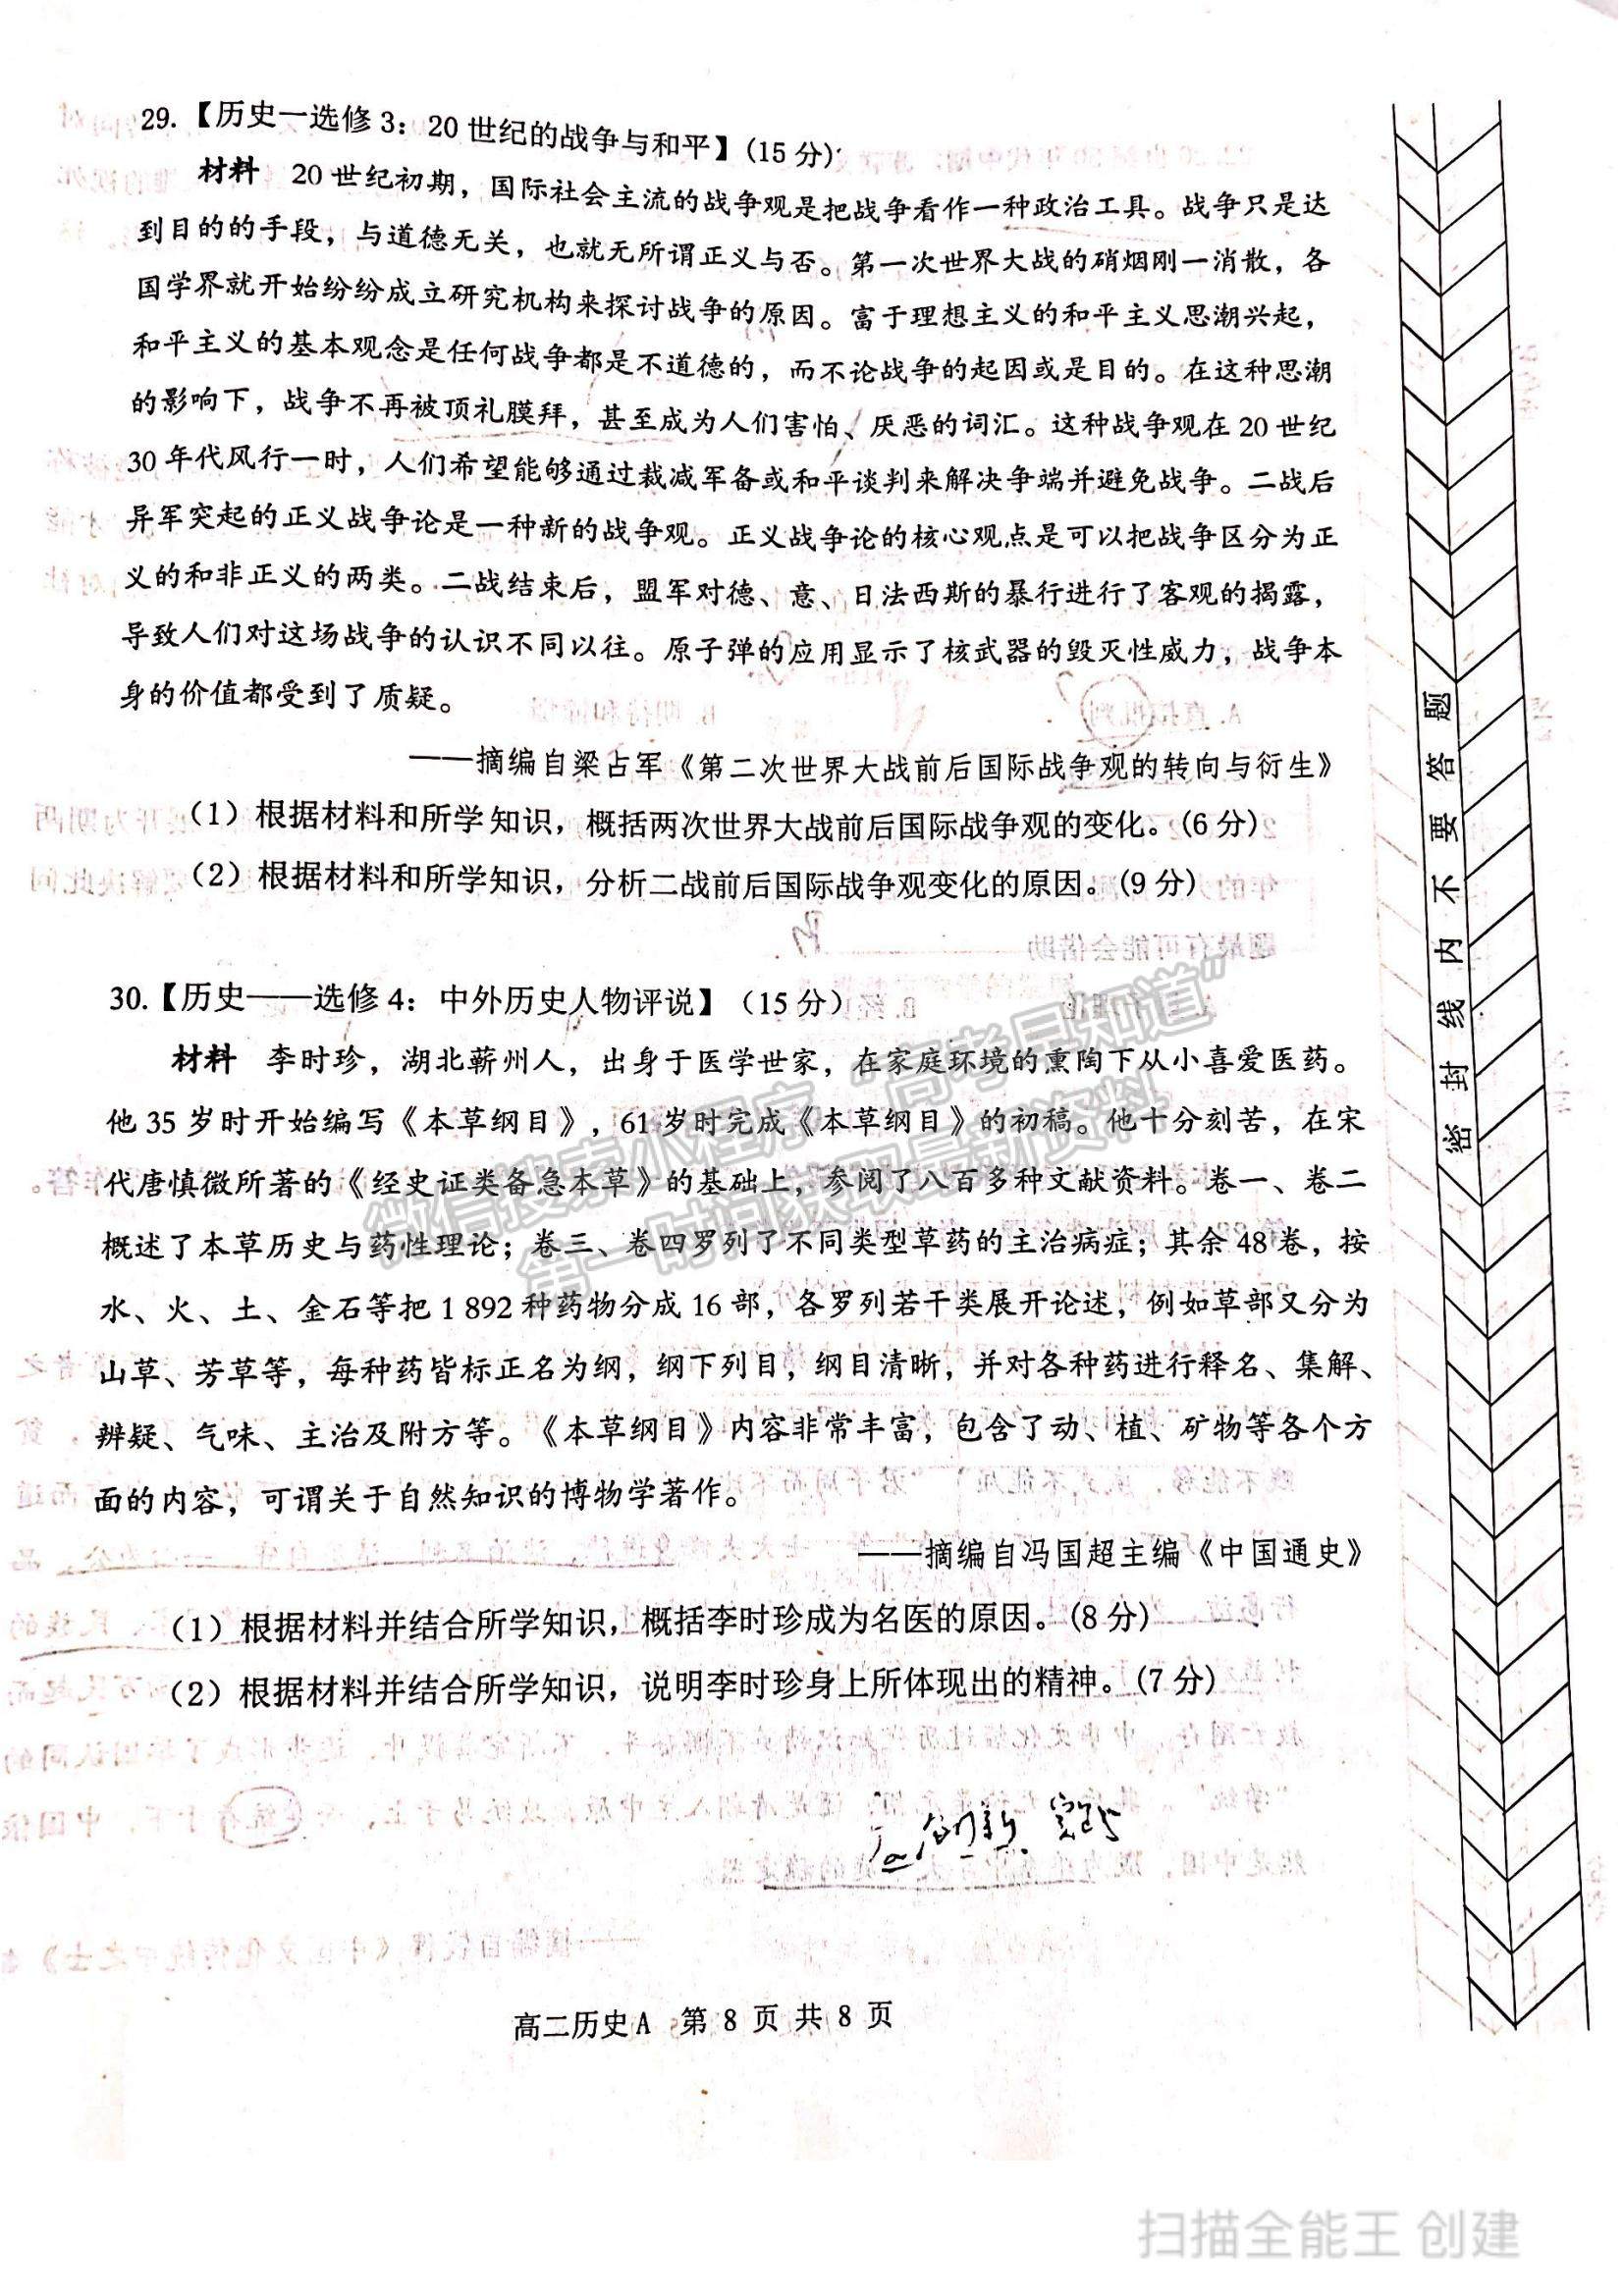 29.【历史一选修 3：20 世纪的战争与和平】(15 分)
材料 20 世纪初期，国际社会主流的战争观是把战争看作一种政治工具。战争只是达
到目的的手段，与道德无关，也就无所谓正义与否。第一次世界大战的硝烟刚一消散，各
国学界就开始纷纷成立研究机构来探讨战争的原因。富于理想主义的和平主义思潮兴起，
和平主义的基本观念是任何战争都是不道德的，而不论战争的起因或是目的。在这种思潮
的影响下，战争不再被顶礼膜拜，甚至成为人们害怕、厌恶的词汇。这种战争观在 20 世纪
30 年代风行一时，人们希望能够通过裁减军备或和平谈判来解决争端并避免战争。二战后
异军突起的正义战争论是一种新的战争观。正义战争论的核心观点是可以把战争区分为正
义的和非正义的两类。二战结束后，盟军对德、意、日法西斯的暴行进行了客观的揭露，
导致人们对这场战争的认识不同以往。原子弹的应用显示了核武器的毁灭性威力，战争本
身的价值都受到了质疑。
——摘编自梁占军《第二次世界大战前后国际战争观的转向与衍生》
（1）根据材料和所学知识，概括两次世界大战前后国际战争观的变化。(6 分)
（2）根据材料和所学知识，分析二战前后国际战争观变化的原因。(9 分)
30.【历史——选修 4：中外历史人物评说】（15 分）
材料 李时珍，湖北蕲州人，出身于医学世家，在家庭环境的熏陶下从小喜爱医药。
他 35 岁时开始编写《本草纲目》，61 岁时完成《本草纲目》的初稿。他十分刻苦，在宋
代唐慎微所著的《经史证类备急本草》的基础上，参阅了八百多种文献资料。卷一、卷二
概述了本草历史与药性理论；卷三、卷四罗列了不同类型草药的主治病症；其余 48 卷，按
水、火、土、金石等把 1 892 种药物分成 16 部，各罗列若干类展开论述，例如草部又分为
山草、芳草等，每种药皆标正名为纲，纲下列目，纲目清晰，并对各种药进行释名、集解、
辨疑、气味、主治及附方等。《本草纲目》内容非常丰富，包含了动、植、矿物等各个方
面的内容，可谓关于自然知识的博物学著作。
——摘编自冯国超主编《中国通史》
（1）根据材料并结合所学知识，概括李时珍成为名医的原因。(8 分)
（2）根据材料并结合所学知识，说明李时珍身上所体现出的精神。(7 分)
创新 实践
高二历史A 第 8 页 共 8 页
密封线内不要答题
微信搜索小程序“高考早知道”
第一时间获取最新资料
扫描全能王 创建